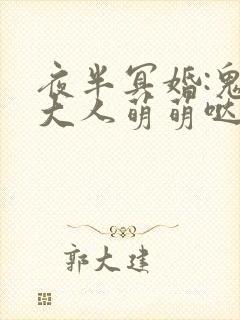 夜半冥婚:鬼
大人萌萌哒
郭大建